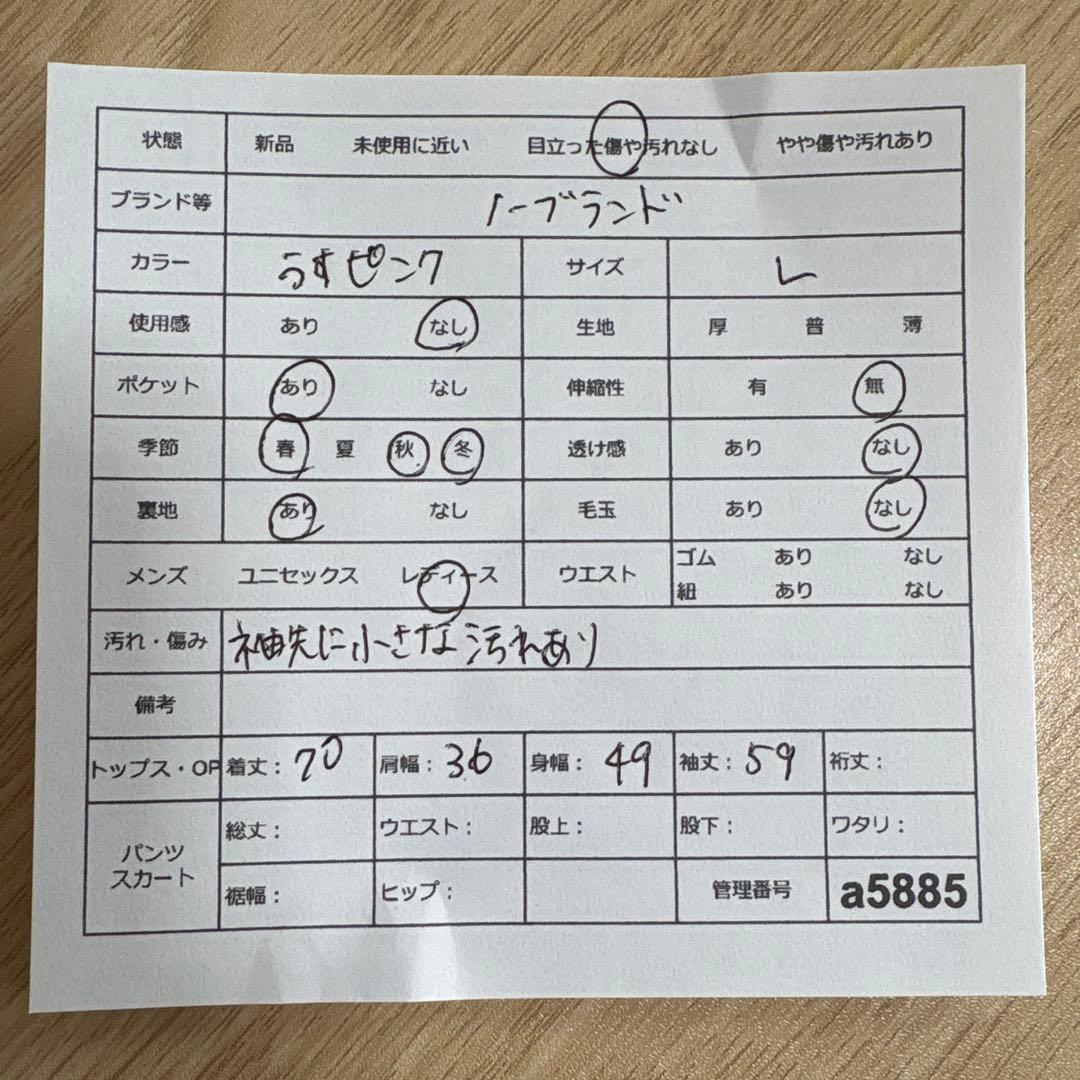 状態 新品 未使用に近い 目立った傷や汚れなし やや傷や汚れあり
ブランド等 ノーブランド
カラー うすピンク サイズ L
使用感 あり なし 生地 厚 普 薄
ポケット あり なし 伸縮性 有 無
季節 春 夏 秋 冬 透け感 あり なし
裏地 あり なし 毛玉 あり なし
メンズ ユニセックス レディース ウエスト ゴム あり なし
紐 あり なし
汚れ・傷み 袖先に小さな汚れあり
備考
トップス・OP 着丈: 70 肩幅: 36 身幅: 49 袖丈: 59 裄丈:
パンツ スカート 総丈: ウエスト: 股上: 股下: ワタリ:
裾幅: ヒップ: 管理番号 a5885